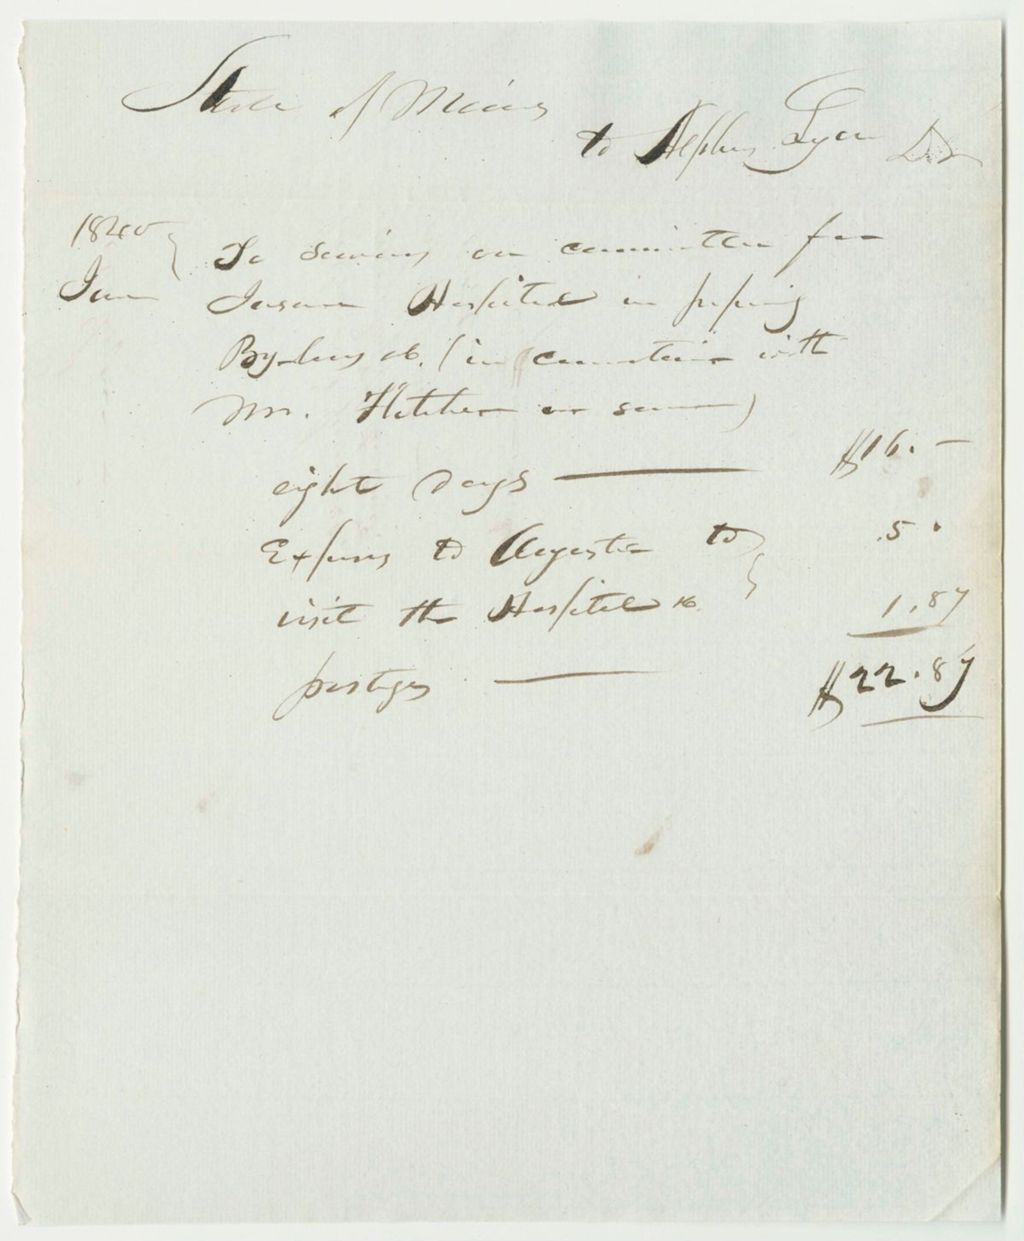 State of Maine
to Alpheus Lyon Dr
1840 To services on committee for
Jan Insane Hospital in preparing
By-laws &c. (in connection with
Mr. Fletcher on same)
eight Days — $16.—
Expenses to Augusta to 5.
visit the Hospital &c.
1.87
postages — $22.87